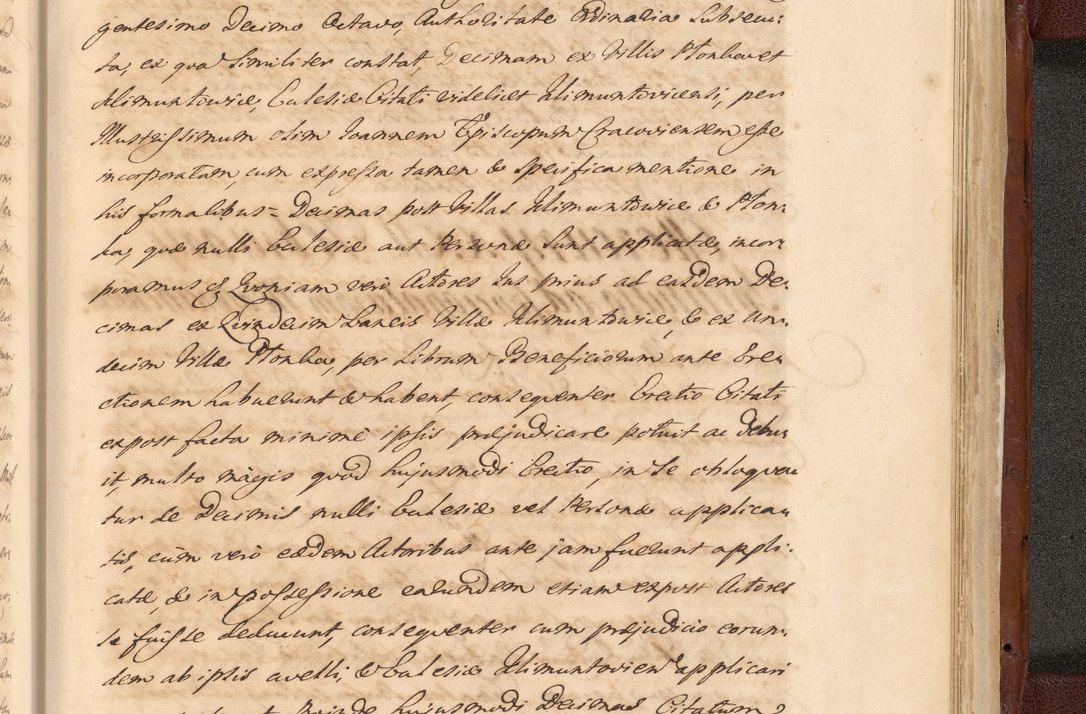 gentesimo Decimo Octavo, Authoritate Ordinaria Subsecu-
ta, ex qua Similiter constat, Decimam ex Villis Płonka et
Klimuntowice, Ecclesiæ Citati videlicet Klimuntovicensi, per
Illustrissimum olim Joannem Episcopum Cracoviensem esse
incorporatam, cum expressa tamen & specifica mentione in
his formalibus = Decimas post Villas Klimuntowice & Płon-
ka, quæ nulli Ecclesiæ aut Personæ Sunt applicatæ, incor-
poramus &c Quoniam verò Actores Jus prius ad easdem De-
cimas ex Quindecim Laneis Villæ Klimuntowice, & ex Un-
decim Villæ Płonka, per Librum Beneficiorum ante Ere-
ctionem habuerunt & habent, consequenter Erectio Citati
expost facta minimè ipsis præjudicare potuit ac debu-
it, multo màgis quod hujusmodi Erectio, in Se obloquen-
tur de Decimis nulli Ecclesiæ vel Personæ applica-
tis, cùm verò eædem Actoribus ante jam fuerunt appli-
catæ, & in possessione earundem etiam expost Actores
se fuisse deducunt, consequenter cum præjudicio eorun-
dem ab ipsis avelli, & Ecclesiæ Klimuntovien applicari
Proinde hujusmodi Decimas Citatum